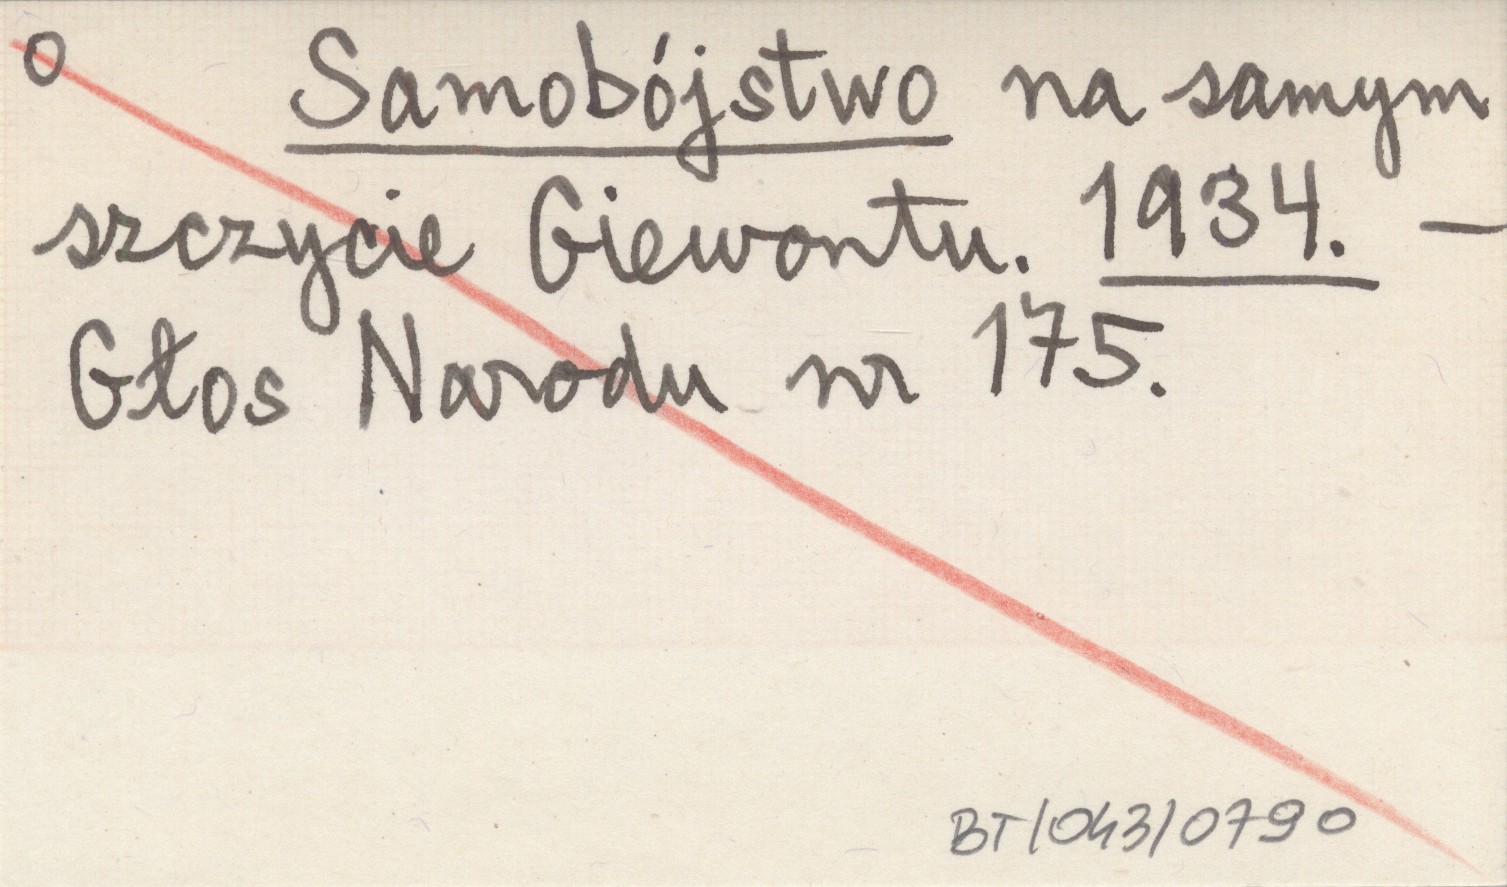 o Samobójstwo na samym
szczycie Giewontu. 1934. —
Głos Narodu nr 175.
BT/043/0790